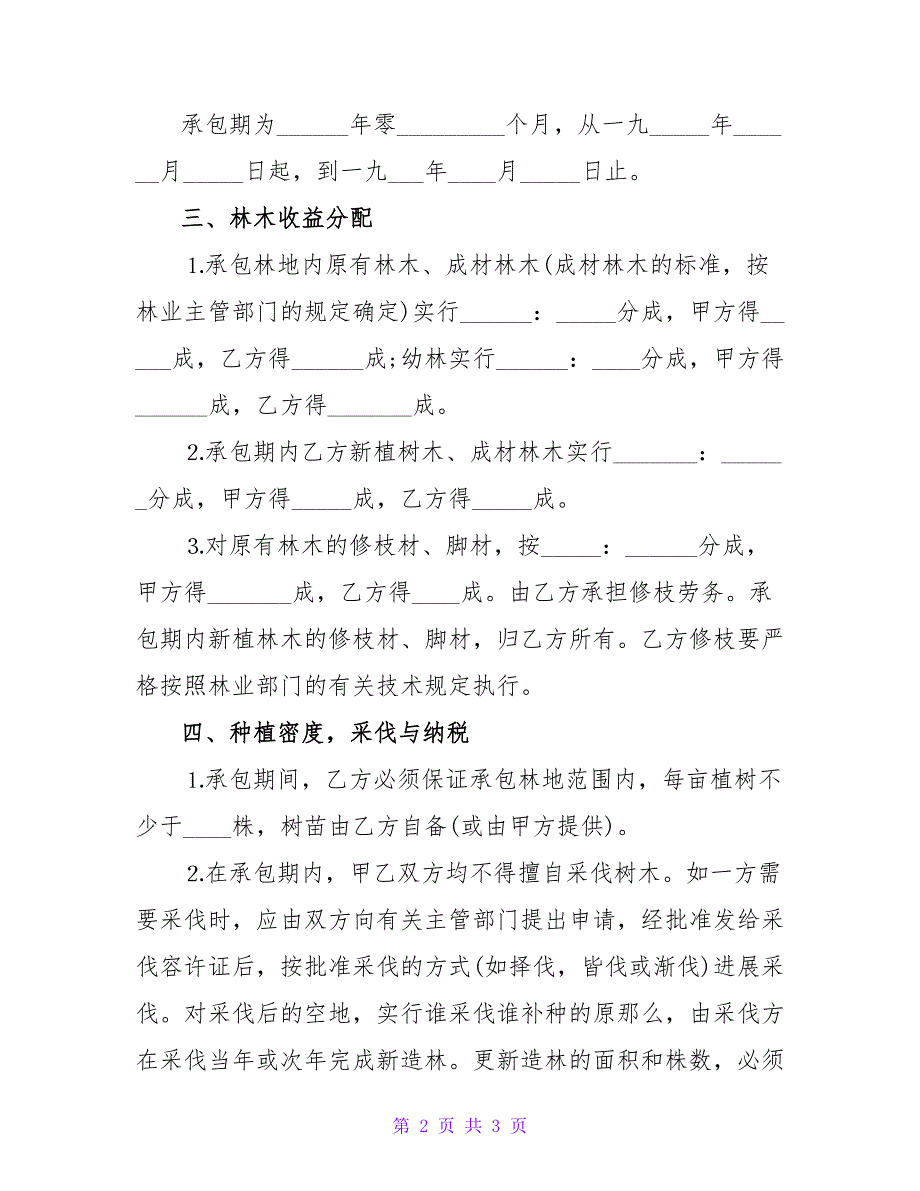 承包期为______年零_________个月，从一九_____年____
__月_____日起，到一九___年____月_____日止。
三、林木收益分配
1.承包林地内原有林木、成材林木(成材林木的标准，按
林业主管部门的规定确定)实行______：_____分成，甲方得__
___成，乙方得______成;幼林实行______：____分成，甲方得
______成，乙方得_______成。
2.承包期内乙方新植树木、成材林木实行_______：_____
_分成，甲方得_____成，乙方得_____成。
3.对原有林木的修枝材、脚材，按_____：______分成，
甲方得_______成，乙方得____成。由乙方承担修枝劳务。承
包期内新植林木的修枝材、脚材，归乙方所有。乙方修枝要严
格按照林业部门的有关技术规定执行。
四、种植密度，采伐与纳税
1.承包期间，乙方必须保证承包林地范围内，每亩植树不
少于____株，树苗由乙方自备(或由甲方提供)。
2.在承包期内，甲乙双方均不得擅自采伐树木。如一方需
要采伐时，应由双方向有关主管部门提出申请，经批准发给采
伐容许证后，按批准采伐的方式(如择伐，皆伐或渐伐)进展采
伐。对采伐后的空地，实行谁采伐谁补种的原那么，由采伐方
在采伐当年或次年完成新造林。更新造林的面积和株数，必须
第 2 页 共 3 页